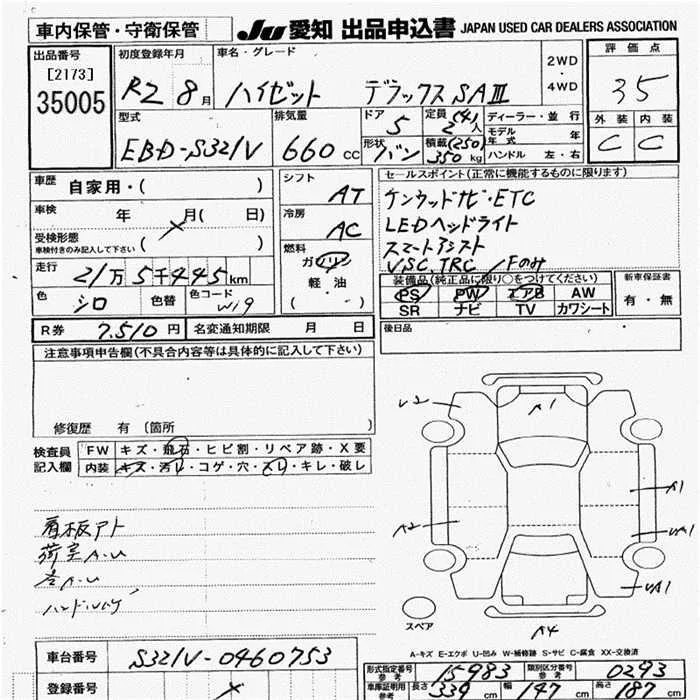 車内保管・守衛保管
JU 愛知 出品申込書 JAPAN USED CAR DEALERS ASSOCIATION
出品番号
[2173]
35005
初度登録年月
R2 8月
車名・グレード
ハイゼット デラックス SAⅢ
2WD
・
4WD
評価点
35
外装 内装
C C
型式
EBD-S321V
排気量
660 cc
ドア
5
形状
バン
定員 (4)
2人
積載 (250)
350 kg
ディーラー・並行
モデル年式 年
ハンドル 左・右
車歴 自家用・( )
車検 年 月( 日)
受検形態
車検付きのみ記入して下さい ( )
走行 21万5千445km
色 シロ 色替 色コード W19
シフト
AT
冷房
AC
燃料
ガソリン
軽油
( )
セールスポイント(正常に機能するものに限ります)
ケンウッドナビ・ETC
LEDヘッドライト
スマートアシスト
VSC.TRC /Fのみ
装備品(純正品に限り○をつけてください)
PS PW エアB AW
SR ナビ TV カワシート
新車保証書
有・無
R券 7,510円 名変通知期限 月 日
後日品
注意事項申告欄(不具合内容等は具体的に記入して下さい)
修復歴 有 〔箇所 〕
検査員
記入欄
FW キズ・飛石・ヒビ割・リペア跡・X要
内装 キズ・汚レ・コゲ・穴・スレ・キレ・破レ
看板アト
荷室A.U
A.U
U2
A1
A2
A1
UA1
UA1
A4
スペア
A-キズ E-エクボ U-凹み W-補修跡 S-サビ C-腐食 XX-交換済
車台番号 S321V-0460753
登録番号
形式指定番号 参考 15983 類別区分番号 参考 0293
車庫証明用 参考 長さ 339 cm 幅 147 cm 高さ 187 cm